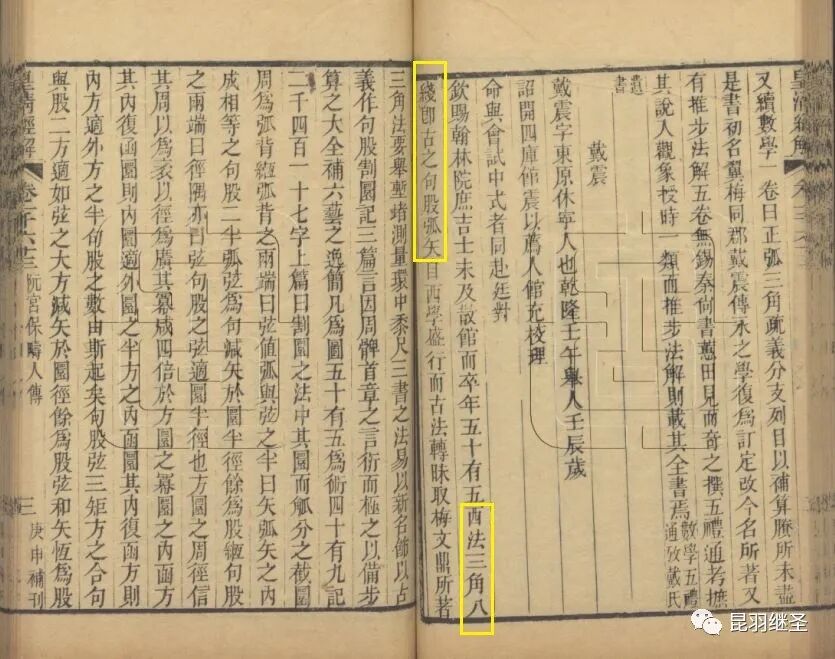 皇清經解
又續數學一卷曰正弧三角疏義分支列目以補算賸所未盡
是書初名翼梅同郡戴震傳永之學復爲訂定改今名所著又
有推步法解五卷無錫秦尚書蕙田見而奇之撰五禮通考摭
其說入觀象授時一類而推步法解則載其全書焉數學五禮通攷戴氏
遺書
戴震
戴震字東原休寧人也乾隆壬午舉人壬辰歲
詔開四庫館震以薦入館充校理
命與會試中式者同赴廷對
欽賜翰林院庶吉士未及散館而卒年五十有五西法三角八
綫卽古之句股弧矢自西學盛行而古法轉昧取梅文鼎所著
三角法要舉塹堵測量環中黍尺三書之法易以新名飾以古
義作句股割圜記三篇言因周髀首章之言衍而極之以備步
算之大全補六藝之逸簡凡爲圖五十有五爲術四十有九記
二千四百一十七字上篇曰割圜之法中其圜而觚分之截圜
周爲弧背縆弧背之兩端曰弦值弧與弦之半曰矢弧矢之內
成相等之句股二半弧弦爲句減矢於圜半徑餘爲股縆句股
之兩端曰徑隅亦曰弦句股之弦適圜半徑也方圜之周徑信
其周以爲袤以徑爲廣其冪咸四倍於方圜之冪圜之內函方
其內復函圜則內圜適外圜之半方之內函圜其內復函方則
內方適外方之半句股之數由斯起矣句股弦三矩方之合句
與股二方適如弦之大方減矢於圜徑餘爲股弦和矢恆爲股
皇清經解
阮宮保疇人傳
三
庚申補刊
昆羽继圣